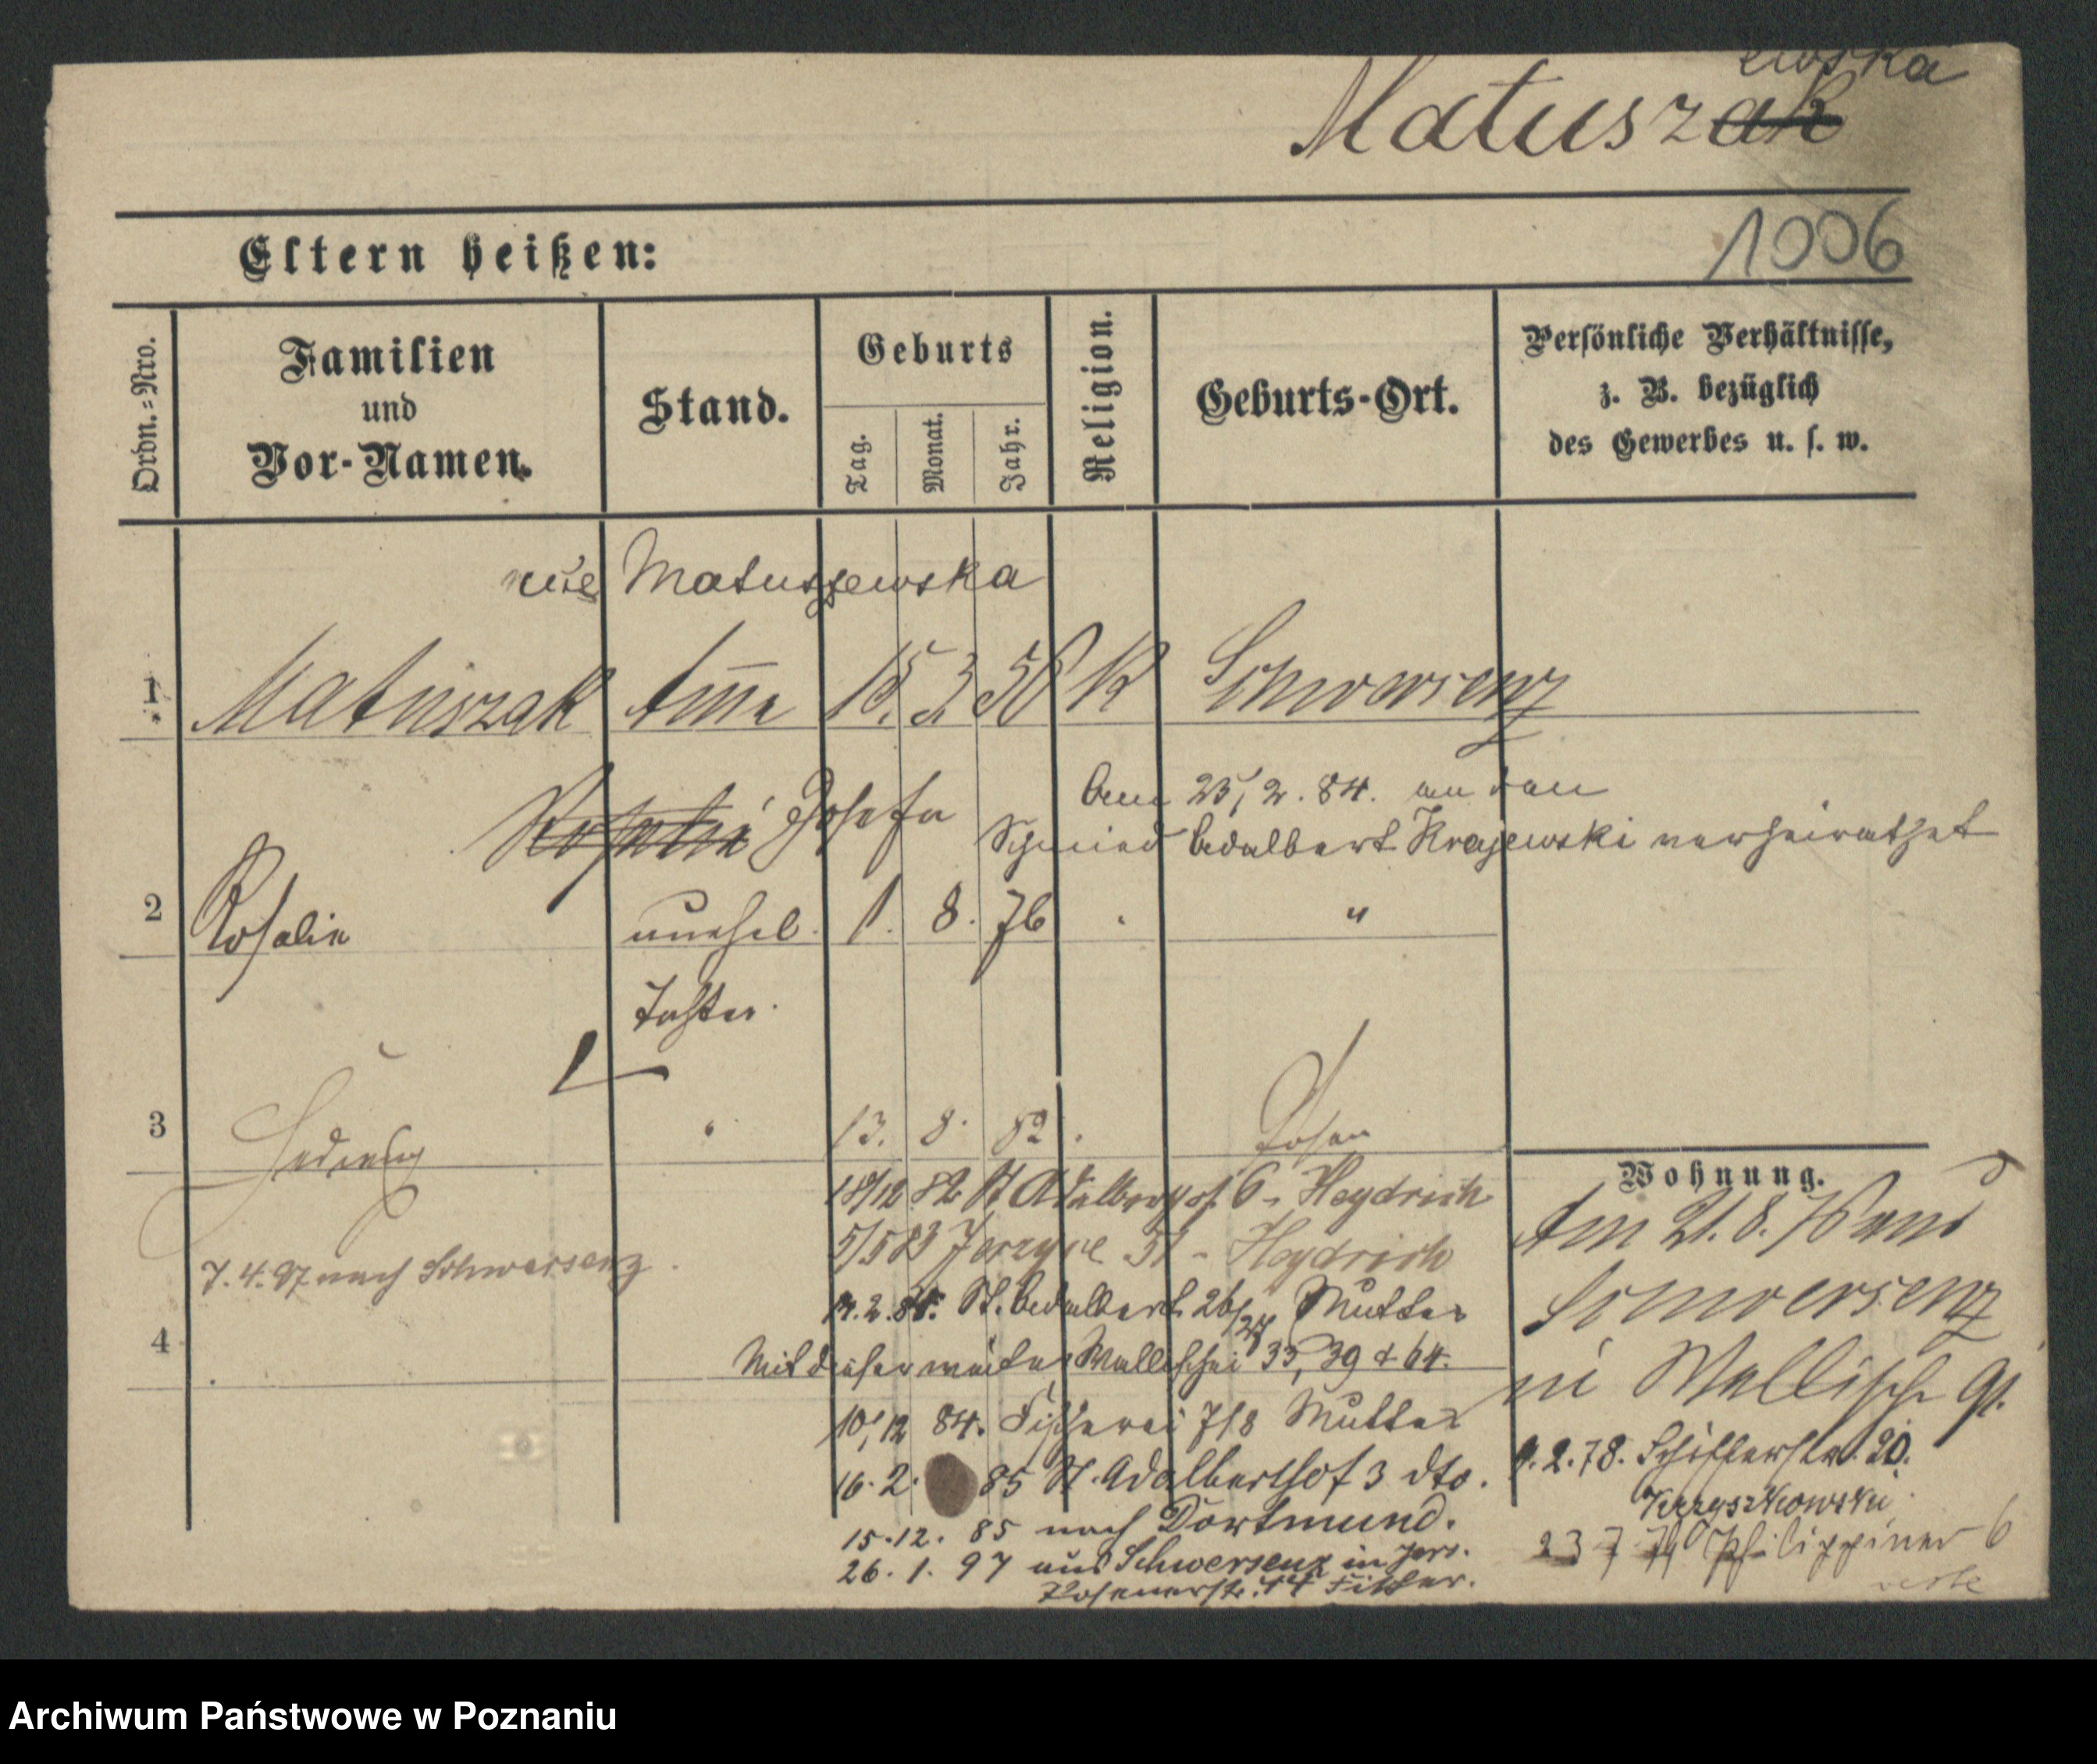 ewska
Matuszak
1006
Eltern heißen:
Ordn.=Nro.
Familien
und
Vor-Namen.
Stand.
Geburts
Tag.
Monat.
Jahr.
Religion.
Geburts-Ort.
Persönliche Verhältnisse,
z. B. bezüglich
des Gewerbes u. s. w.
Matuszewska
1 Matuszak Anna 15. 3 50 K Schwersenz
Josefa
23/2. 84. an den
Schmied Adalbert Krajewski verheirathet
2 Rosalie unehel. 1. 8. 76 . "
Tochter.
3 Hedwig " 13. 8. 82 . Posen
Wohnung.
18/12 82 St Adalbert 6 - Heydrich
5/5 83 Jerzyce 31 - Heydrich
2. 84. St. Adalbert 26/27 Mutter
4 Mit dieser weiter Wallischei 33, 39 & 64.
10/12 84. Fischerei 7/8 Mutter
16. 2. 85 St. Adalberthof 3 dto.
15. 12. 85 nach Dortmund.
26. 1. 97 aus Schwersenz in Jers.
Posenerstr. 14
7. 4. 97 nach Schwersenz.
Am 21. 8. 76 aus
Schwersenz
in Wallisch 91.
2. 78. Schifferstr. 20.
23 7 79 Philippiner 6
Archiwum Państwowe w Poznaniu